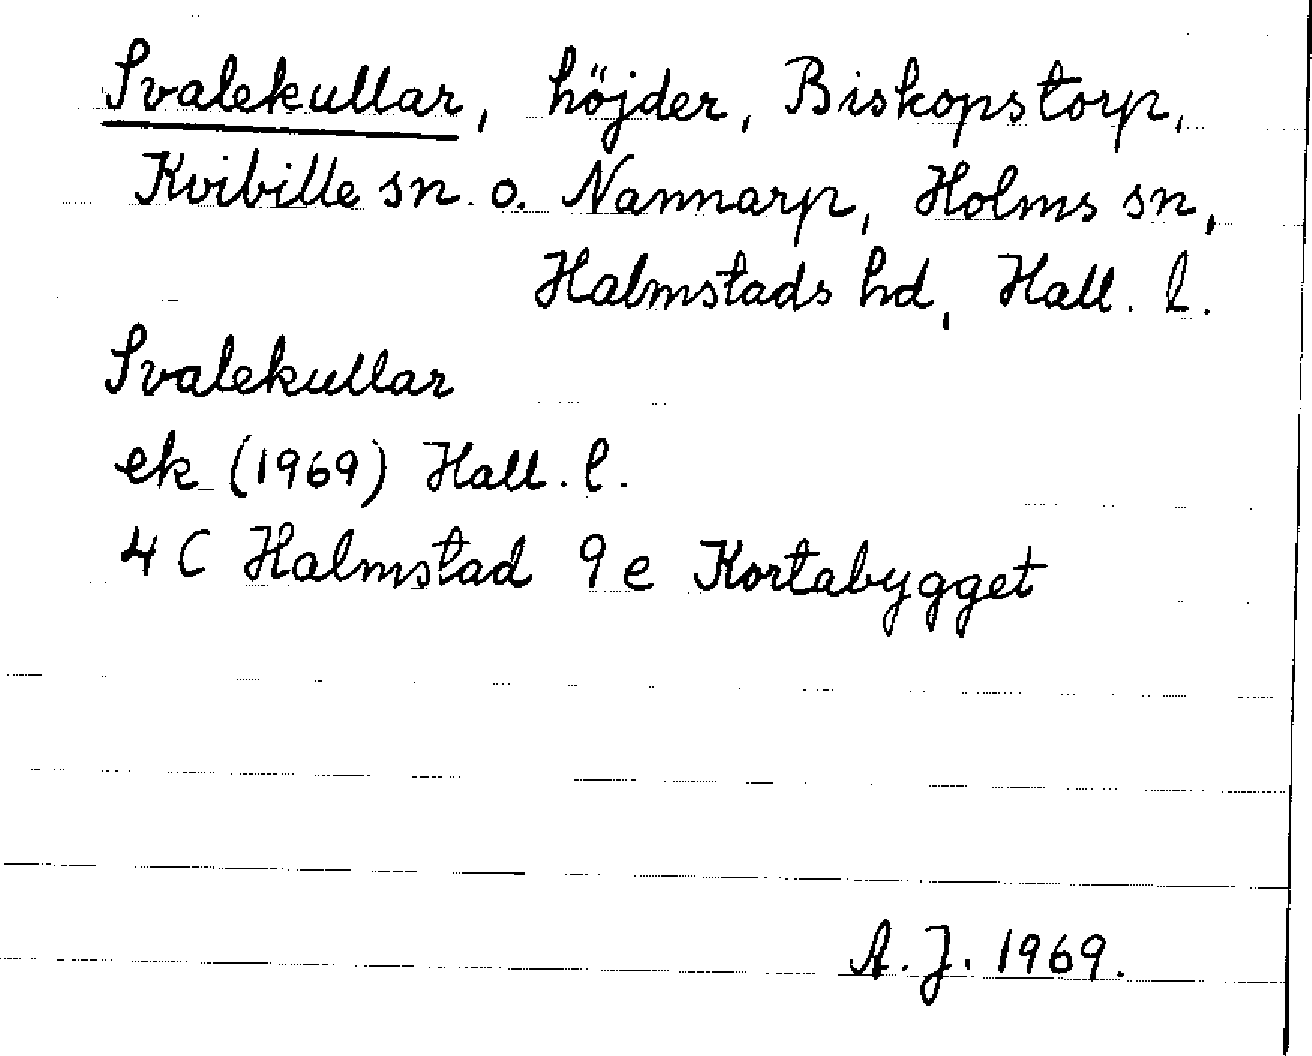 Svalekullar, höjder, Biskopstorp,
Kvibille sn. o. Nannarp, Holms sn,
Halmstads hd, Hall. l.
Svalekullar
ek (1969) Hall. l.
4 C Halmstad 9 e Kortabygget
A. J. 1969.